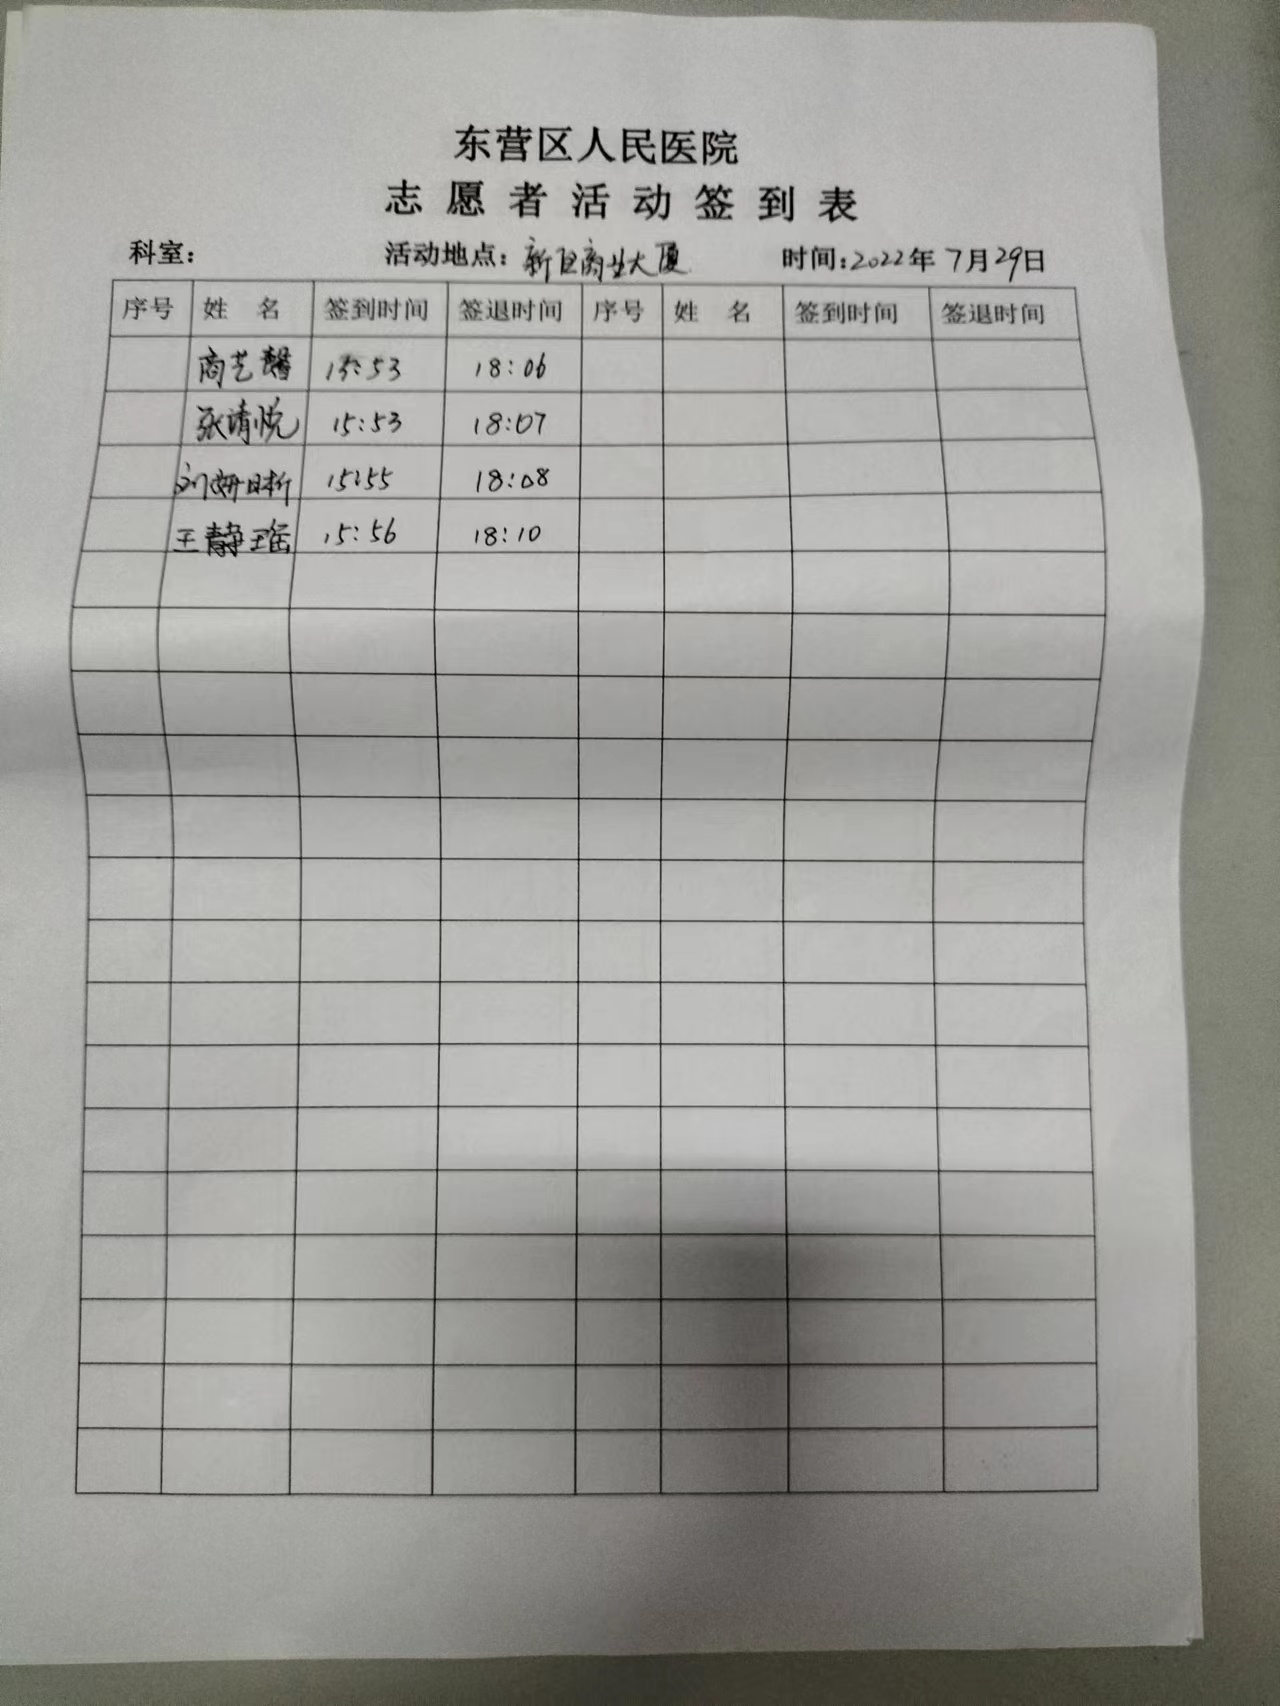 东营区人民医院
志愿者活动签到表
科室： 活动地点：新区商业大厦 时间：2022年7月29日
序号 姓 名 签到时间 签退时间 序号 姓 名 签到时间 签退时间
商艺馨 15:53 18:06
张清悦 15:53 18:07
刘妍昕 15:55 18:08
王静瑶 15:56 18:10